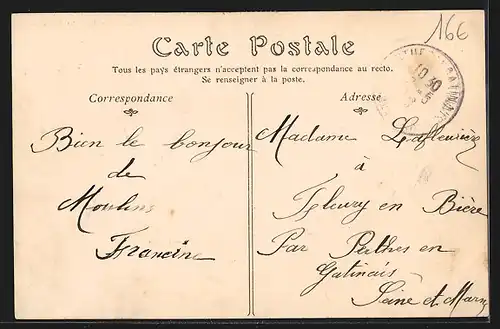 166
Carte Postale
Tous les pays étrangers n'acceptent pas la correspondance au recto.
Se renseigner à la poste.
Correspondance
Adresse
Bien le bonjour
de
Moulins
Francine
Madame Lafleurière
à
Fleury en Bière
Par Perthes en
Gatinais
Seine et Marn